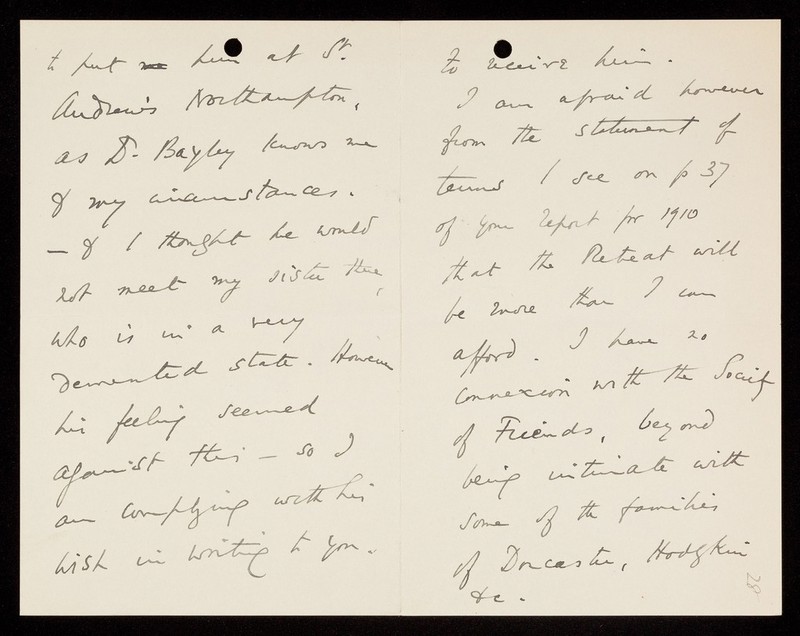 to put me him at St.
Andrew's Northampton,
as Dr. Bayley knows me
& my circumstances.
— & I thought he would
not meet my sister there,
who is in a very
demented state. However
his feeling seemed
against this — so I
am complying with his
wish in writing to you.
to receive him.
I am afraid however
from the statement of
terms I see on p 37
of your Report for 1910
that the Retreat will
be more than I can
afford. I have no
connexion with the Society
of Friends, beyond
being intimate with
some of the families
of Doncaster, Hodgkin
&c.
28